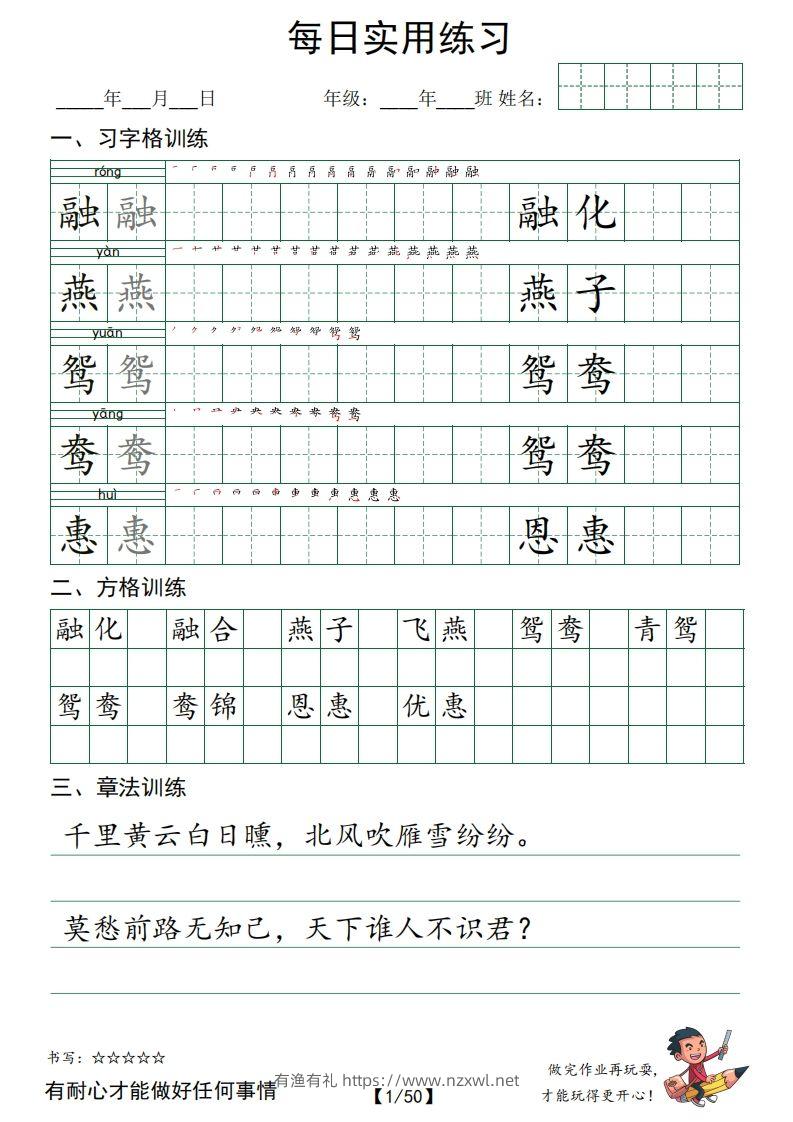 每日实用练习
_____年___月___日 年级：____年____班 姓名：
一、习字格训练
róng
融 融 融 化
yàn
燕 燕 燕 子
yuān
鸳 鸳 鸳 鸯
yāng
鸯 鸯 鸳 鸯
huì
惠 惠 恩 惠
二、方格训练
融化 融合 燕子 飞燕 鸳鸯 青鸳
鸳鸯 鸯锦 恩惠 优惠
三、章法训练
千里黄云白日曛，北风吹雁雪纷纷。
莫愁前路无知己，天下谁人不识君？
书写：☆☆☆☆☆
有耐心才能做好任何事情
有渔有礼 https://www.nzxwl.net
【1/50】
做完作业再玩耍，
才能玩得更开心！